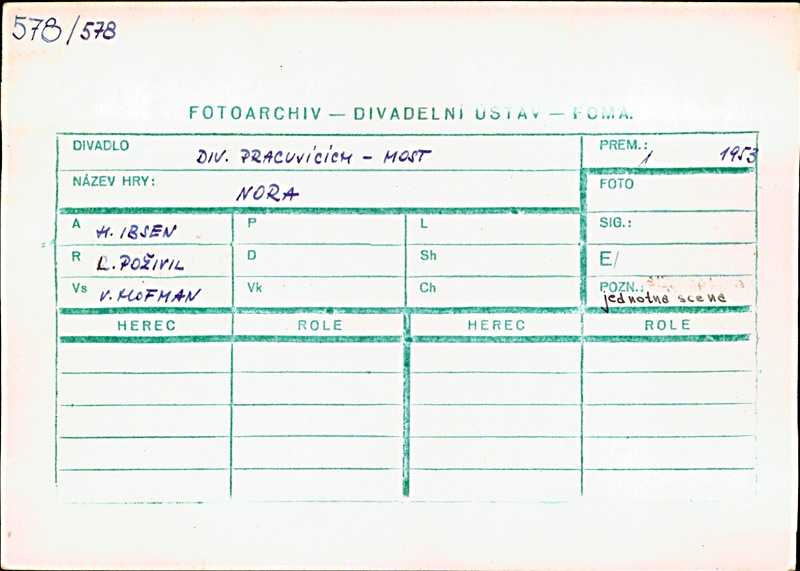 578/578
FOTOARCHIV — DIVADELNÍ ÚSTAV — FOMA.
DIVADLO DIV. PRACUVÍCÍCH - MOST PREM.: 1 1953
NÁZEV HRY: NORA FOTO
A H. IBSEN P L SIG.:
R L. POŽIVIL D Sh E/
Vs V. HOFMAN Vk Ch POZN.: jednotna scena
HEREC ROLE HEREC ROLE